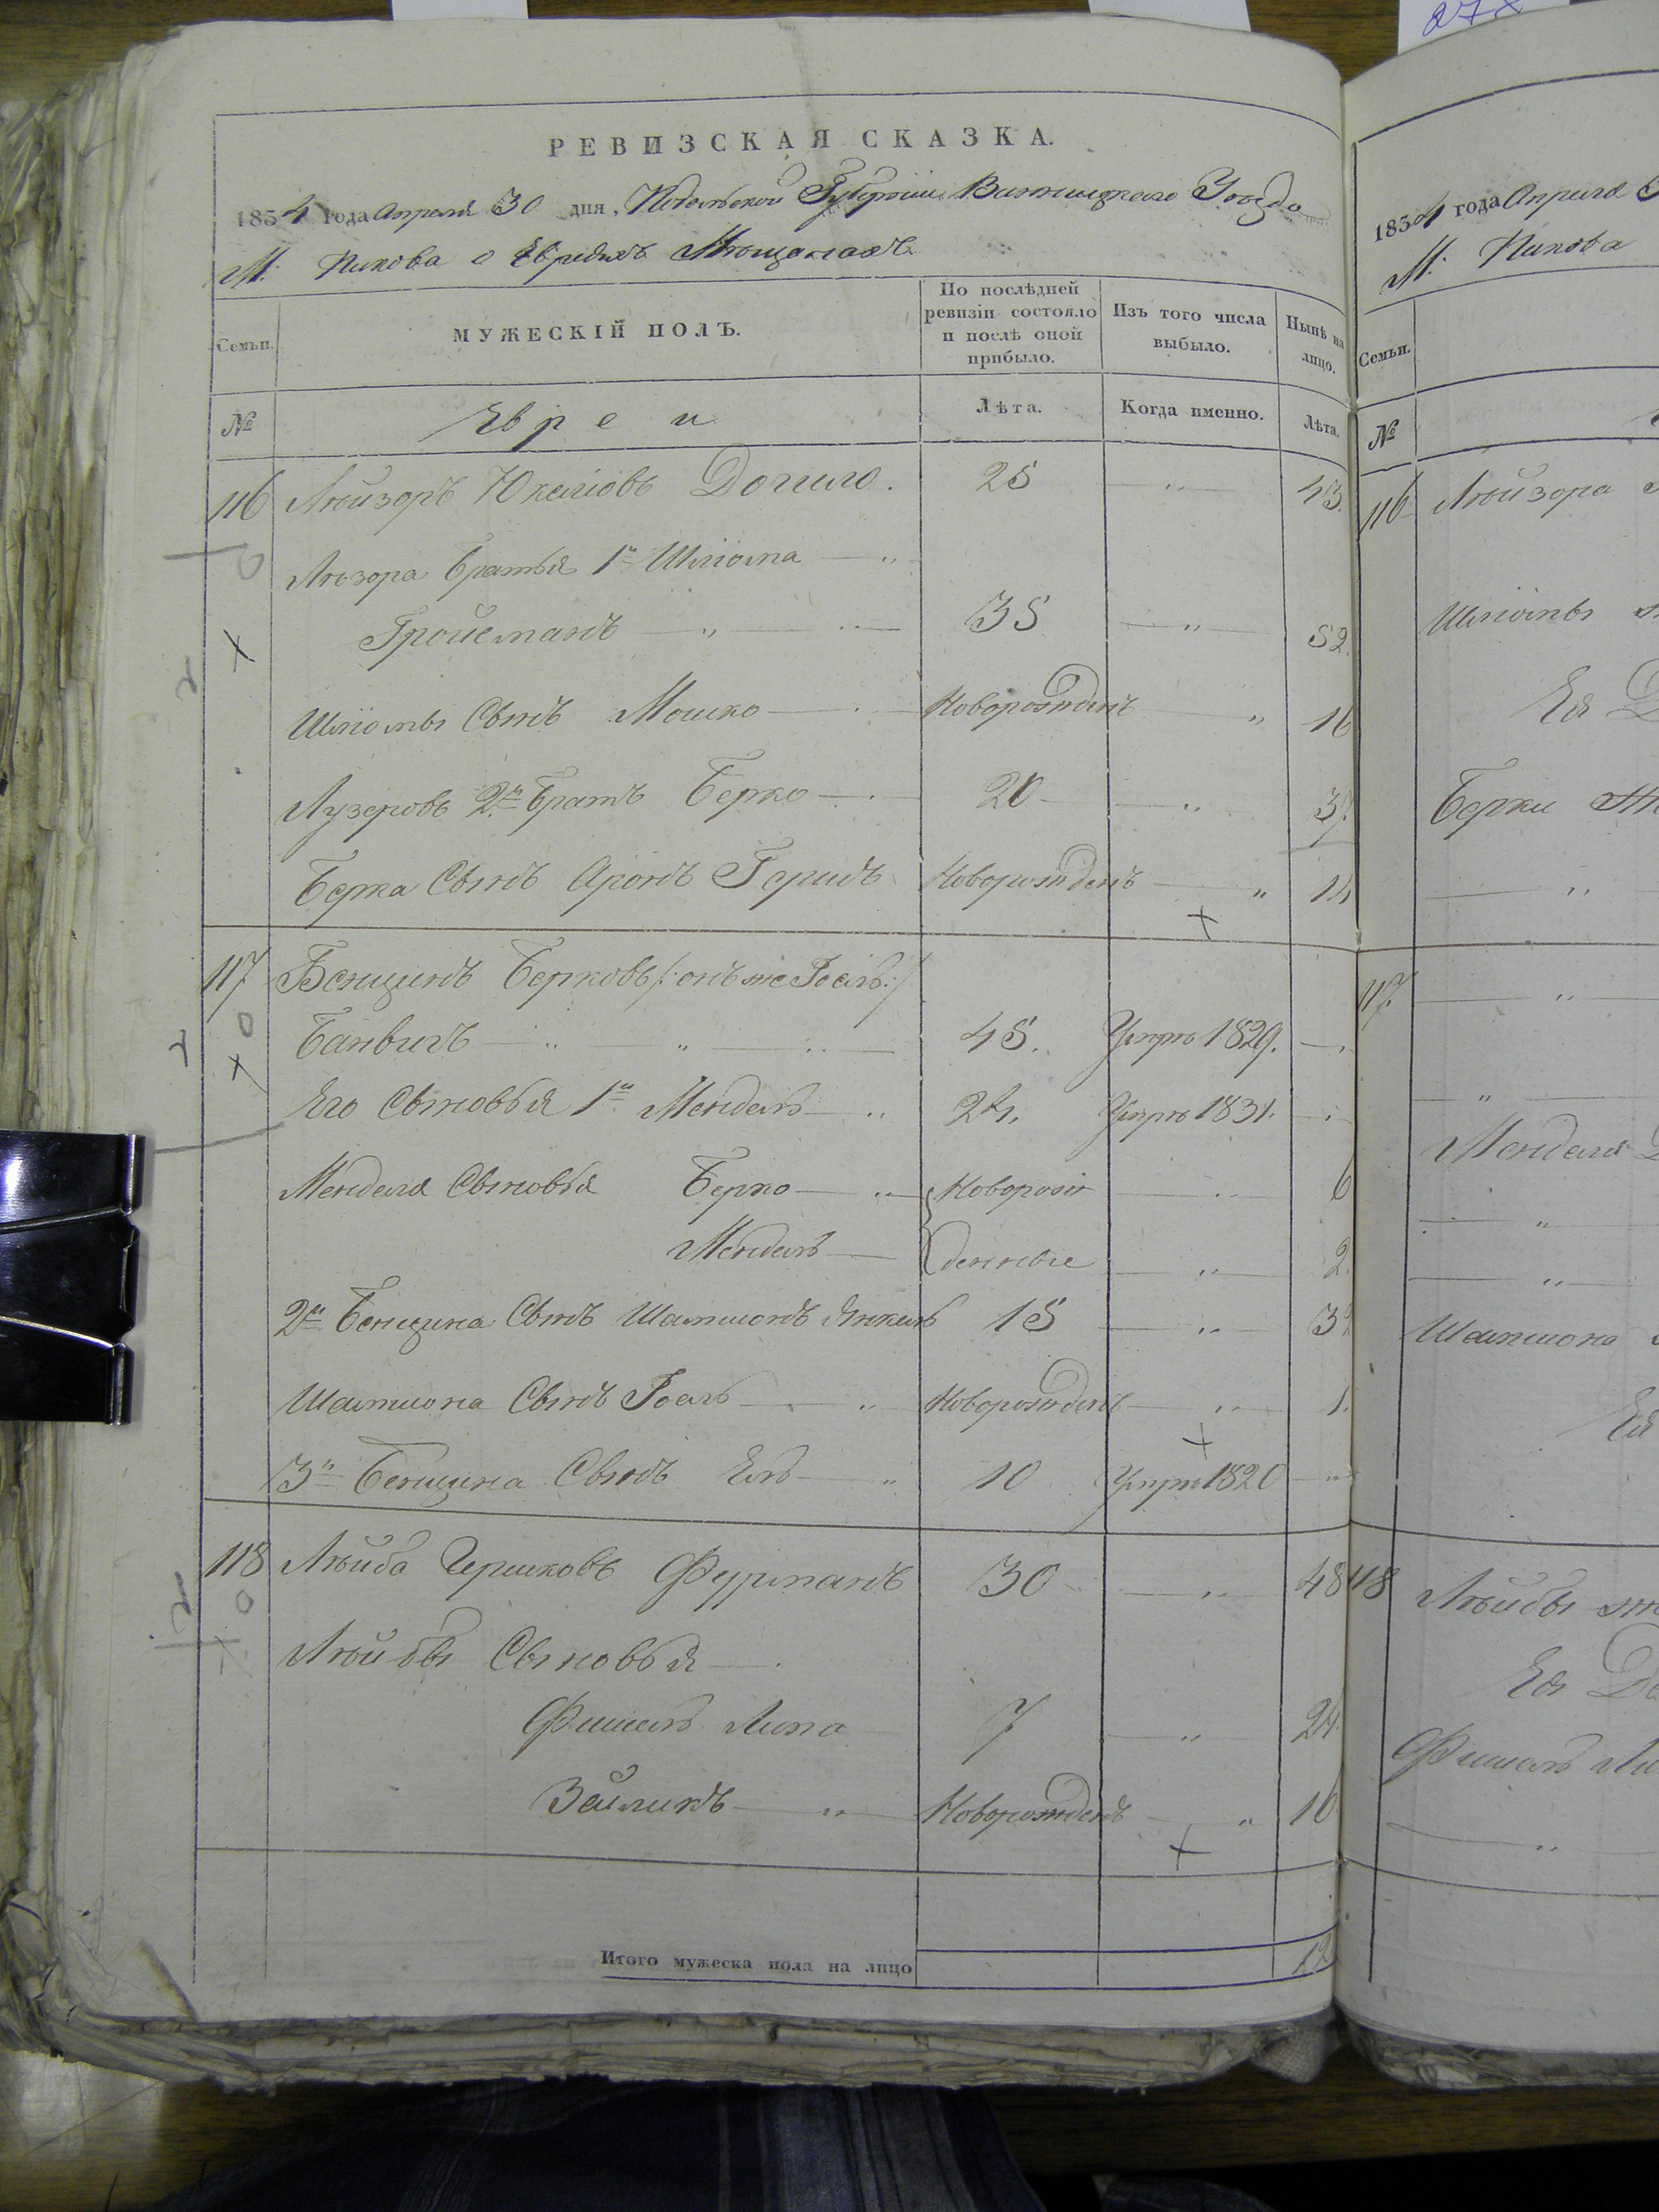 278
РЕВИЗСКАЯ СКАЗКА.
1834 года Апреля 30 дня, Подольской Губернии Винницкаго Уезда
М: Пикова о Евреяхъ Мѣщанахъ
Семьи.
МУЖЕСКІЙ ПОЛЪ.
По послѣдней ревизіи состояло и послѣ оной прибыло.
Изъ того числа выбыло.
Нынѣ на лицо.
№
Евреи
Лѣта.
Когда именно.
Лѣта.
116 Лѣйзоръ Юкелiовъ 25 — „ — 43.
Лѣзора братья 1й Шліома — „
Гройсманъ — „ — 35 — „ — 52.
Шліомы Сынъ Мошко — Новорожденъ „ 16
Лузеровъ 2й братъ Берко — 20 — „ — 37.
Берка Сынъ Аронъ Гершъ Новорожденъ — „ 14
117 Бенционъ Берковъ /:онъ же Іосль:/
Банвигъ — „ — „ — 45. Умеръ 1829. —
Его Сыновья 1й Мендель — „ 24, Умеръ 1831. —
Менделя Сыновья Берко — „ — Новорож — „ — 6
Мендель — денные — „ — 2.
2й Бенциона Сынъ Шамшонъ Янкель 15 — „ —
Шамшона Сынъ Іосль — „ Новорожденъ — „ — 1.
3й Бенциона Сынъ — „ 10 Умеръ 1820 — „
118 Лѣйба Гершковъ Фурманъ 30 — „ — 48
Лѣйбы Сыновья —
Фишель Липа 7 — „ — 24.
Зейликъ — „ — Новорожденъ — „ 16
Итого мужеска пола на лицо 12
1834 года Апреля
М: Пикова
Семьи.
№
116 Лѣйзора
Шліомы
Ея
Берки
— „ —
117. — „ —
— „ —
Менделя
— „ —
— „ —
Шамшона
Ея
118 Лѣйбы
Ея
Фишель
— „ —